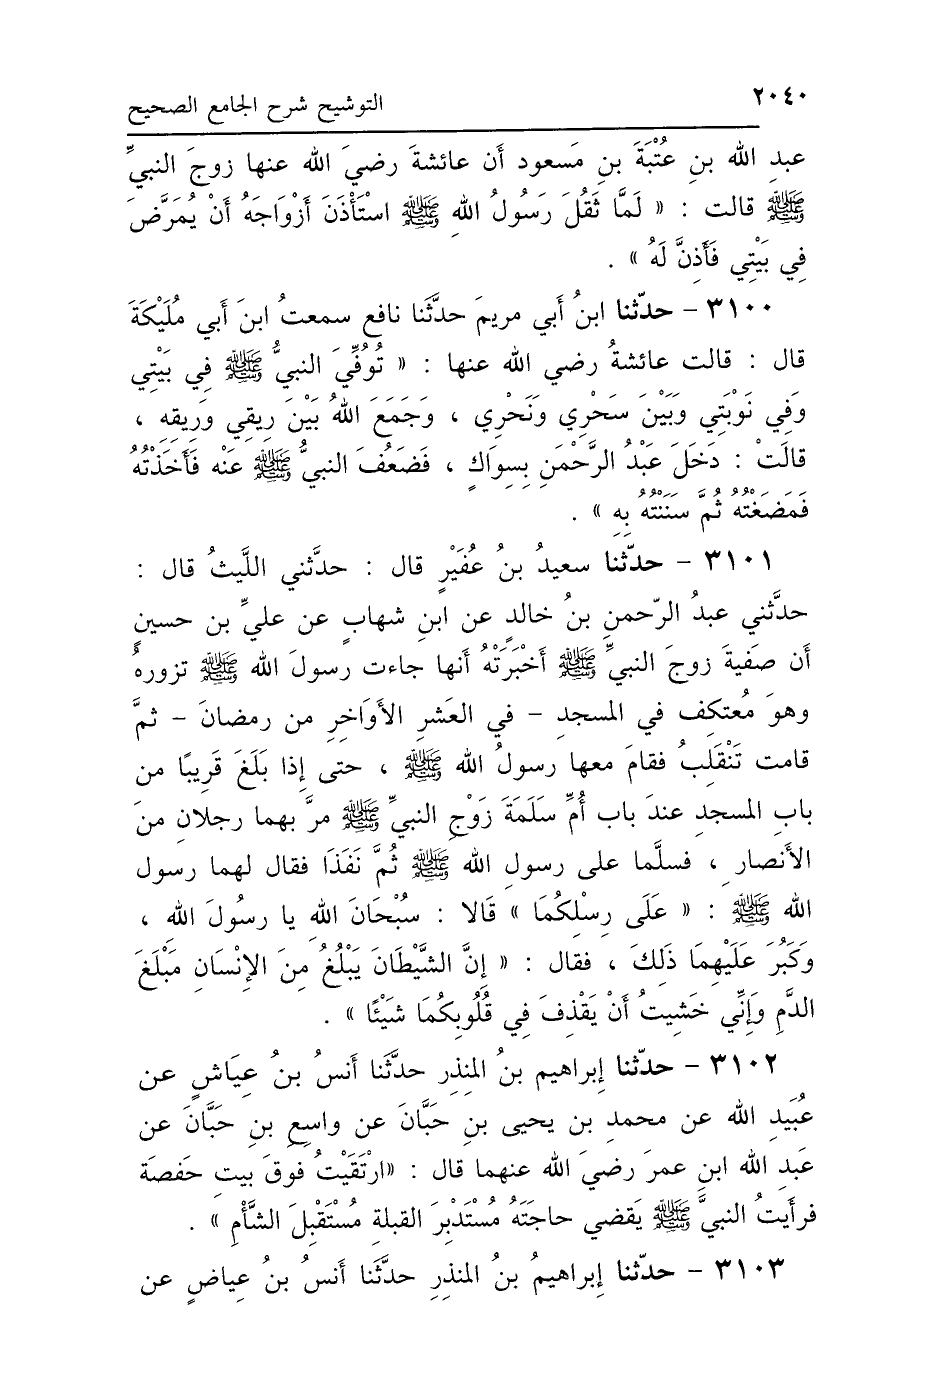 ٢٠٤٠ التوشيح شرح الجامع الصحيح
عبدِ الله بنِ عُتْبَةَ بنِ مَسعود أن عائشةَ رضيَ الله عنها زوجَ النبيِّ
ﷺ قالت : « لَمَّا ثَقُلَ رَسُولُ اللهِ ﷺ استَأْذَنَ أَزْوَاجَهُ أَنْ يُمَرَّضَ
فِي بَيْتِي فَأَذِنَّ لَهُ » .
٣١٠٠ – حدّثنا ابنُ أَبي مريمَ حدَّثَنا نافع سمعتُ ابنَ أَبي مُلَيْكَةَ
قال : قالت عائشةُ رضي الله عنها : « تُوُفِّيَ النبيُّ ﷺ فِي بَيْتِي
وَفِي نَوْبَتِي وَبَيْنَ سَحْرِي وَنَحْرِي ، وَجَمَعَ اللهُ بَيْنَ رِيقِي وَرِيقِه ،
قالَتْ : دَخَلَ عَبْدُ الرَّحْمَنِ بِسِوَاكٍ ، فَضَعُفَ النبيُّ ﷺ عَنْه فَأَخَذْتُهُ
فَمَضَغْتُهُ ثُمَّ سَنَنْتُهُ بِهِ » .
٣١٠١ – حدّثنا سعيدُ بنُ عُفَيْرٍ قال : حدَّثني اللَّيثُ قال :
حدَّثني عبدُ الرّحمنِ بنُ خالدٍ عن ابنِ شهابٍ عن عليِّ بن حسينٍ
أن صَفيةَ زوجَ النبيِّ ﷺ أَخْبَرَتْهُ أنها جاءت رسولَ الله ﷺ تزورهُ
وهوَ مُعتكف في المسجدِ – في العَشرِ الأَوَاخرِ من رمضانَ – ثمَّ
قامت تَنْقَلِبُ فقامَ معها رسولُ الله ﷺ ، حتى إِذا بَلَغَ قَرِيبًا من
بابِ المسجدِ عندَ باب أُمِّ سَلَمَةَ زَوْجِ النبيِّ ﷺ مرَّ بهما رجلانِ منَ
الأنصارِ ، فسلَّما على رسولِ الله ﷺ ثُمَّ نَفَذَا فقال لهما رسول
الله ﷺ : « عَلَى رِسْلِكُمَا » قَالا : سُبْحَانَ اللهِ يا رسُولَ اللهِ ،
وَكَبُرَ عَلَيْهِمَا ذَلِكَ ، فقال : « إِنَّ الشَّيْطَانَ يَبْلُغُ مِنَ الإِنْسَانِ مَبْلَغَ
الدَّمِ وَإِنِّي خَشِيتُ أَنْ يَقْذِفَ فِي قُلُوبِكُمَا شَيْئًا » .
٣١٠٢ – حدّثنا إِبراهيم بنُ المنذِرِ حدَّثَنا أَنسُ بنُ عِيَاشٍ عن
عُبَيدِ الله عن محمدِ بن يحيى بنِ حَبَّانَ عن واسِعِ بنِ حَبَّانَ عن
عَبدِ الله ابنِ عمرَ رضيَ الله عنهما قال : «ارْتَقَيْتُ فوقَ بيتِ حَفصَة
فرأَيتُ النبيَّ ﷺ يَقضي حاجتَهُ مُسْتَدْبِرَ القبلةِ مُسْتَقْبِلَ الشَّأْمِ » .
٣١٠٣ – حدّثنا إِبراهيمُ بنُ المنذِرِ حدَّثَنا أَنسُ بنُ عِياضٍ عن